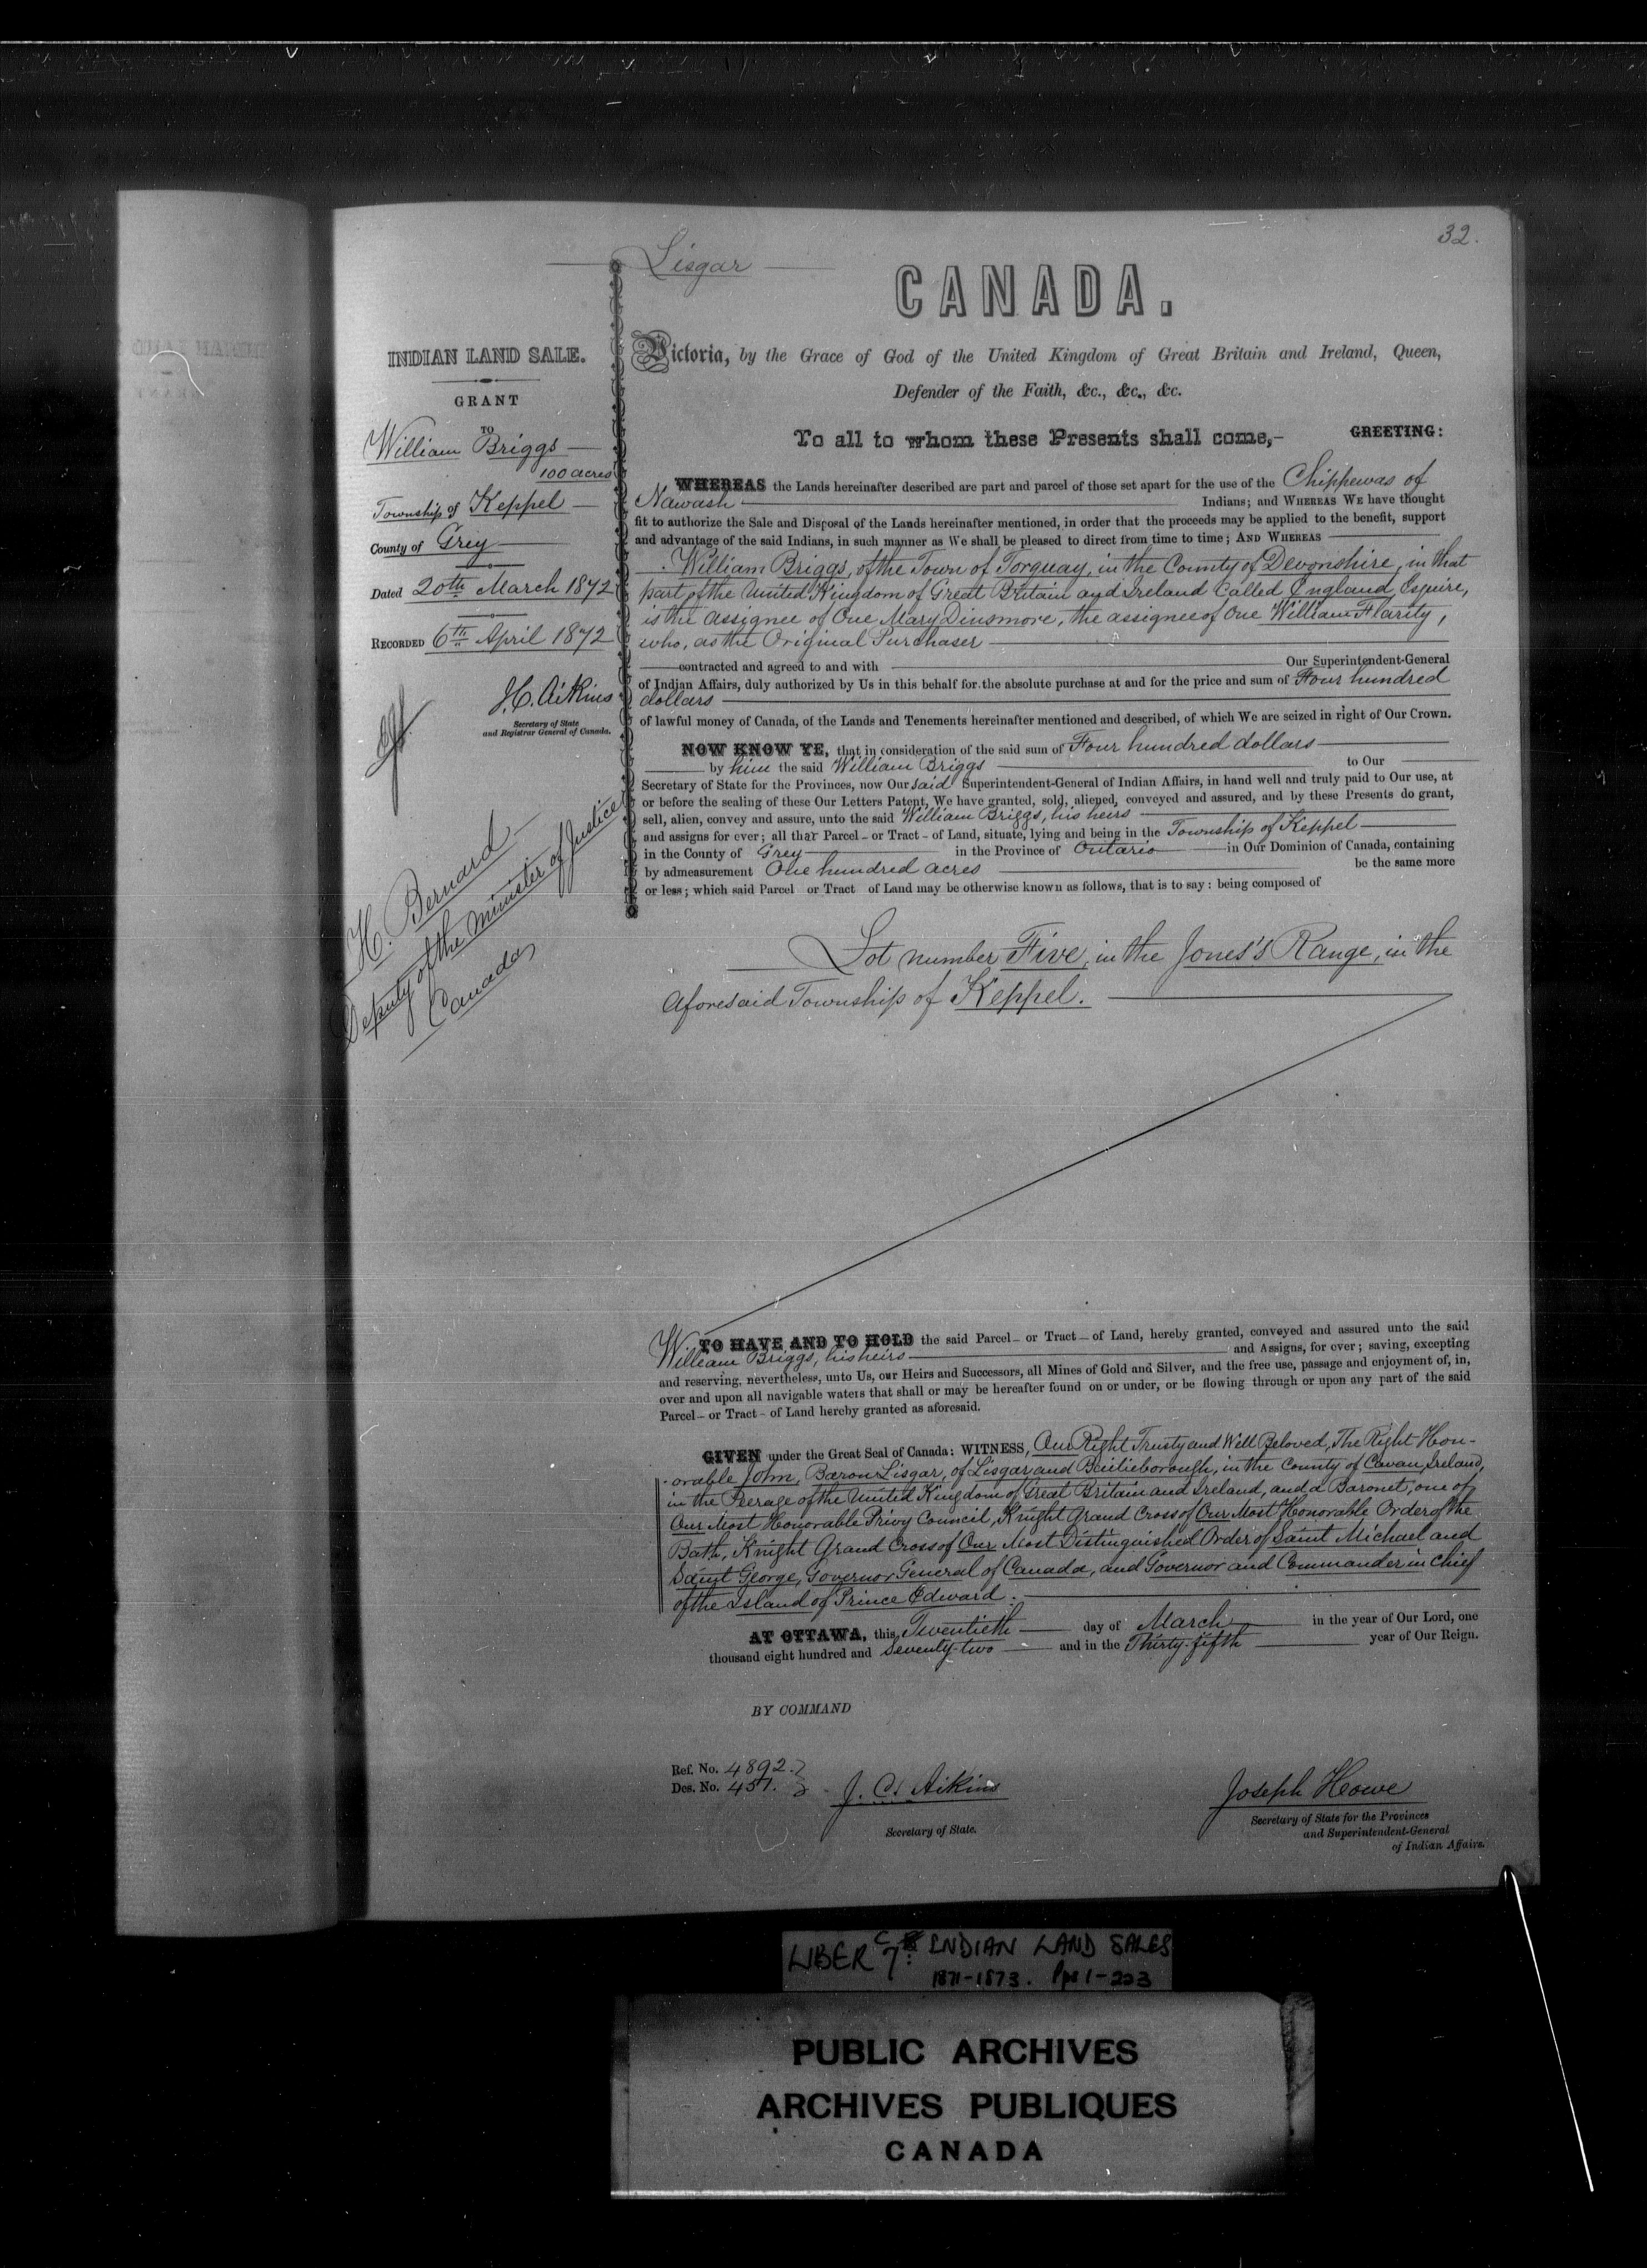 32.
Lisgar
CANADA.
INDIAN LAND SALE.
GRANT
TO
William Briggs
100 acres
Township of Keppel
County of Grey
Dated 20th March 1872
RECORDED 6th April 1872
J.C. Aikins
Secretary of State
and Registrar General of Canada.
H. Bernard
Deputy of the Minister of Justice
Canada
Victoria, by the Grace of God of the United Kingdom of Great Britain and Ireland, Queen,
Defender of the Faith, &c., &c., &c.
To all to whom these Presents shall come,- GREETING:
WHEREAS the Lands hereinafter described are part and parcel of those set apart for the use of the Chippewas of
Nawash Indians; and WHEREAS WE have thought
fit to authorize the Sale and Disposal of the Lands hereinafter mentioned, in order that the proceeds may be applied to the benefit, support
and advantage of the said Indians, in such manner as We shall be pleased to direct from time to time; AND WHEREAS
William Briggs, of the Town of Torquay, in the County of Devonshire, in that
part of the United Kingdom of Great Britain and Ireland Called England, Esquire,
is the assignee of One Mary Dinsmore, the assignee of One William Flarity,
who, as the Original Purchaser
contracted and agreed to and with Our Superintendent-General
of Indian Affairs, duly authorized by Us in this behalf for the absolute purchase at and for the price and sum of Four hundred
dollars
of lawful money of Canada, of the Lands and Tenements hereinafter mentioned and described, of which We are seized in right of Our Crown.
NOW KNOW YE, that in consideration of the said sum of Four hundred dollars
by him the said William Briggs to Our
Secretary of State for the Provinces, now Our said Superintendent-General of Indian Affairs, in hand well and truly paid to Our use, at
or before the sealing of these Our Letters Patent, We have granted, sold, aliened, conveyed and assured, and by these Presents do grant,
sell, alien, convey and assure, unto the said William Briggs, his heirs
and assigns for ever; all that Parcel - or Tract - of Land, situate, lying and being in the Township of Keppel
in the County of Grey in the Province of Ontario in Our Dominion of Canada, containing
by admeasurement One hundred acres be the same more
or less; which said Parcel or Tract of Land may be otherwise known as follows, that is to say: being composed of
Lot number Five, in the Jones's Range, in the
aforesaid Township of Keppel.
TO HAVE AND TO HOLD the said Parcel - or Tract - of Land, hereby granted, conveyed and assured unto the said
William Briggs, his heirs and Assigns, for ever; saving, excepting
and reserving, nevertheless, unto Us, our Heirs and Successors, all Mines of Gold and Silver, and the free use, passage and enjoyment of, in,
over and upon all navigable waters that shall or may be hereafter found on or under, or be flowing through or upon any part of the said
Parcel - or Tract - of Land hereby granted as aforesaid.
GIVEN under the Great Seal of Canada: WITNESS, Our Right Trusty and Well Beloved, The Right Hon-
-orable John, Baron Lisgar, of Lisgar and Bailieborough, in the County of Cavan, Ireland,
in the Peerage of the United Kingdom of Great Britain and Ireland, and a Baronet, one of
Our Most Honorable Privy Council, Knight Grand Cross of Our Most Honorable Order of the
Bath, Knight Grand Cross of Our Most Distinguished Order of Saint Michael and
Saint George, Governor General of Canada, and Governor and Commander in Chief
of the Island of Prince Edward.
AT OTTAWA, this Twentieth day of March in the year of Our Lord, one
thousand eight hundred and Seventy-two and in the Thirty-fifth year of Our Reign.
BY COMMAND
Ref. No. 4892.
Des. No. 451.
J. C. Aikins
Secretary of State.
Joseph Howe
Secretary of State for the Provinces
and Superintendent-General
of Indian Affairs.
LIBER C 7: INDIAN LAND SALES
1871-1873. Pps 1-223
PUBLIC ARCHIVES
ARCHIVES PUBLIQUES
CANADA